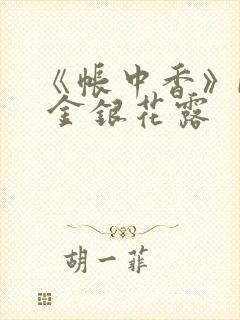 《帐中香》
金银花露
胡一菲